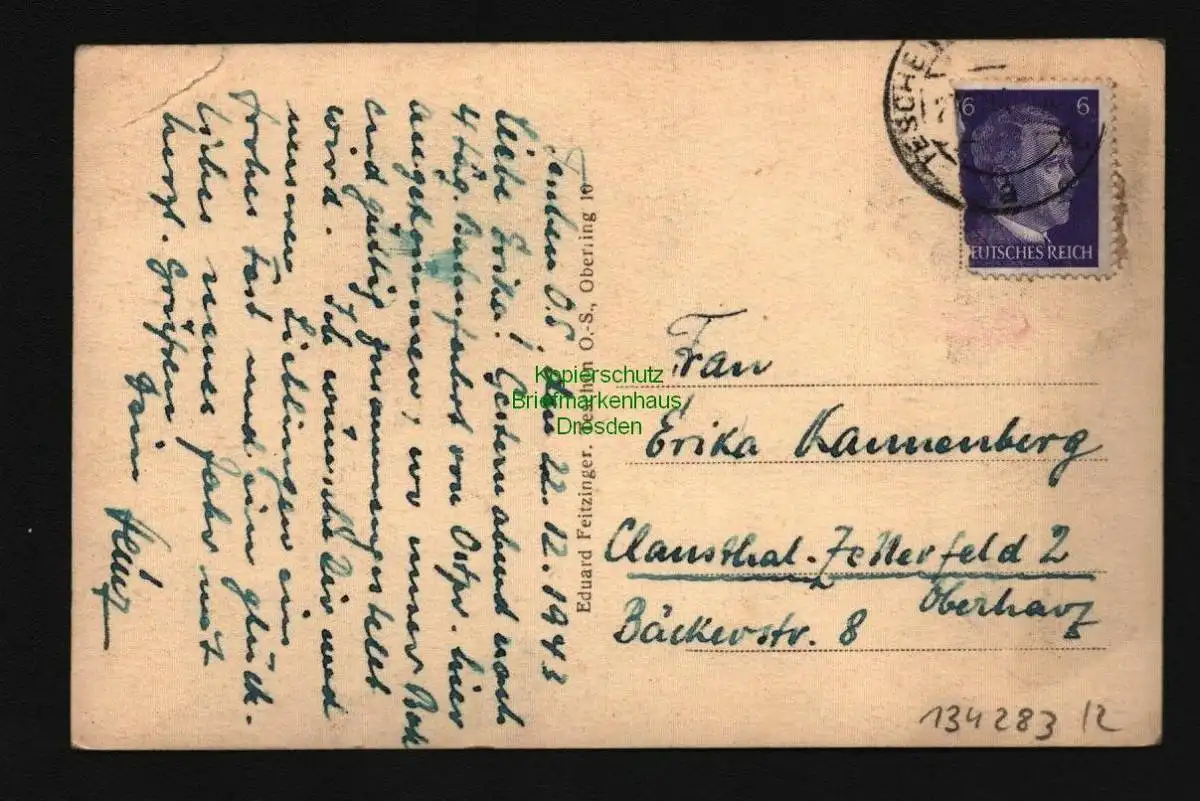 den 22.12.1943
Liebe Erika! Gestern abend nach
4täg. Bahnfahrt von Ostpr. hier
angekommen, wo unser Batl.
endgültig zusammengestellt
wird. Ich wünsche Dir und
unseren Lieblingen ein
frohes Fest und ein glück-
liches neues Jahr mit
herzl. Grüßen
Dein Heinz
Eduard Feitzinger, Teschen O.-S., Oberring 10
TESCHEN
6 6
DEUTSCHES REICH
Frau
Erika Kannenberg
Clausthal-Zellerfeld 2
Oberharz
Bäckerstr. 8
Kopierschutz
Briefmarkenhaus
Dresden
134283 12